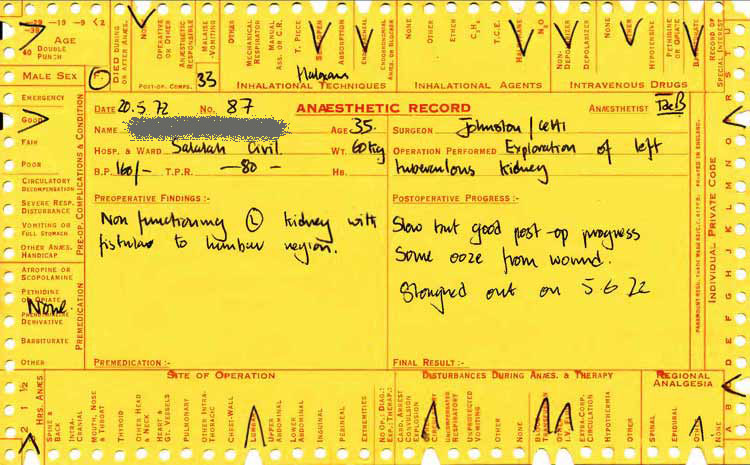 -39 -19 -9 <2
40 DOUBLE PUNCH
AGE
DIED DURING OR AFTER ANÆS.
NONE
OPERATIVE OR OTHER
ANÆSTHETIC RESPONSIBLE
MALAISE -VOMITING
OTHER
MECHANICAL RESPIRATOR
MANUAL ASS. OR C.R.
T. PIECE
ABSORPTION
ENDOTRACHEAL
ENDOBRONCHIAL
NONE
OTHER
ETHER
C₂H₄
T.C.E.
N₂O
NON-DEPOLARIZER
DEPOLARIZER
OTHER
HYPOTENSIVE
PETHIDINE OR OPIATE
BARBITURATE
RECORD OF SPECIAL INTEREST
MALE SEX
F
POST-OP. COMPS.
33
Halox
INHALATIONAL TECHNIQUES
INHALATIONAL AGENTS
INTRAVENOUS DRUGS
EMERGENCY
GOOD
FAIR
POOR
CIRCULATORY DECOMPENSATION
SEVERE RESP. DISTURBANCE
VOMITING OR FULL STOMACH
OTHER ANÆS. HANDICAP
PRE-OP. COMPLICATIONS & CONDITION
ATROPINE OR SCOPOLAMINE
PETHIDINE OR OPIATE
None.
PHENOTHIAZINE DERIVATIVE
BARBITURATE
OTHER
PREMEDICATION
DATE 20.5.72 NO. 87 ANÆSTHETIC RECORD ANÆSTHETIST TaeB
NAME AGE 35. SURGEON Johnston/Cetti
HOSP. & WARD Salalah Civil WT. 60kg OPERATION PERFORMED Exploration of left
B.P. 160/- T.P.R. —80 — HB. tuberculous kidney
PREOPERATIVE FINDINGS :-
Non functioning (L) kidney with
fistulae to lumbar region.
PREMEDICATION :-
POSTOPERATIVE PROGRESS :-
Slow but good post-op progress
Some ooze from wound.
Stonged out on 5.6.72
FINAL RESULT :-
PRINTED IN ENGLAND.
INDIVIDUAL PRIVATE CODE
SITE OF OPERATION
DISTURBANCES DURING ANÆS. & THERAPY
REGIONAL ANALGESIA
2 1 ½
HRS. ANÆS.
SPINE & BACK
INTRA-CRANIAL
MOUTH, NOSE & THROAT
THYROID
OTHER HEAD & NECK
HEART & GT. VESSELS
PULMONARY
OTHER INTRA-THORACIC
CHEST-WALL
LUMBAR
UPPER ABDOMINAL
LOWER ABDOMINAL
INGUINAL
PERINEAL
EXTREMITIES
NO OP.; DIAG.; EXP.; THERAP.;
CARD. ARREST CONVULSION EXPLOSION
UNEXPECTED RESPIRATORY
UNPRODUCED VOMITING
OTHER
NONE
EXTRA-CORP. CIRCULATION
HYPOTHERMIA
OTHER
SPINAL
EPIDURAL
NONE